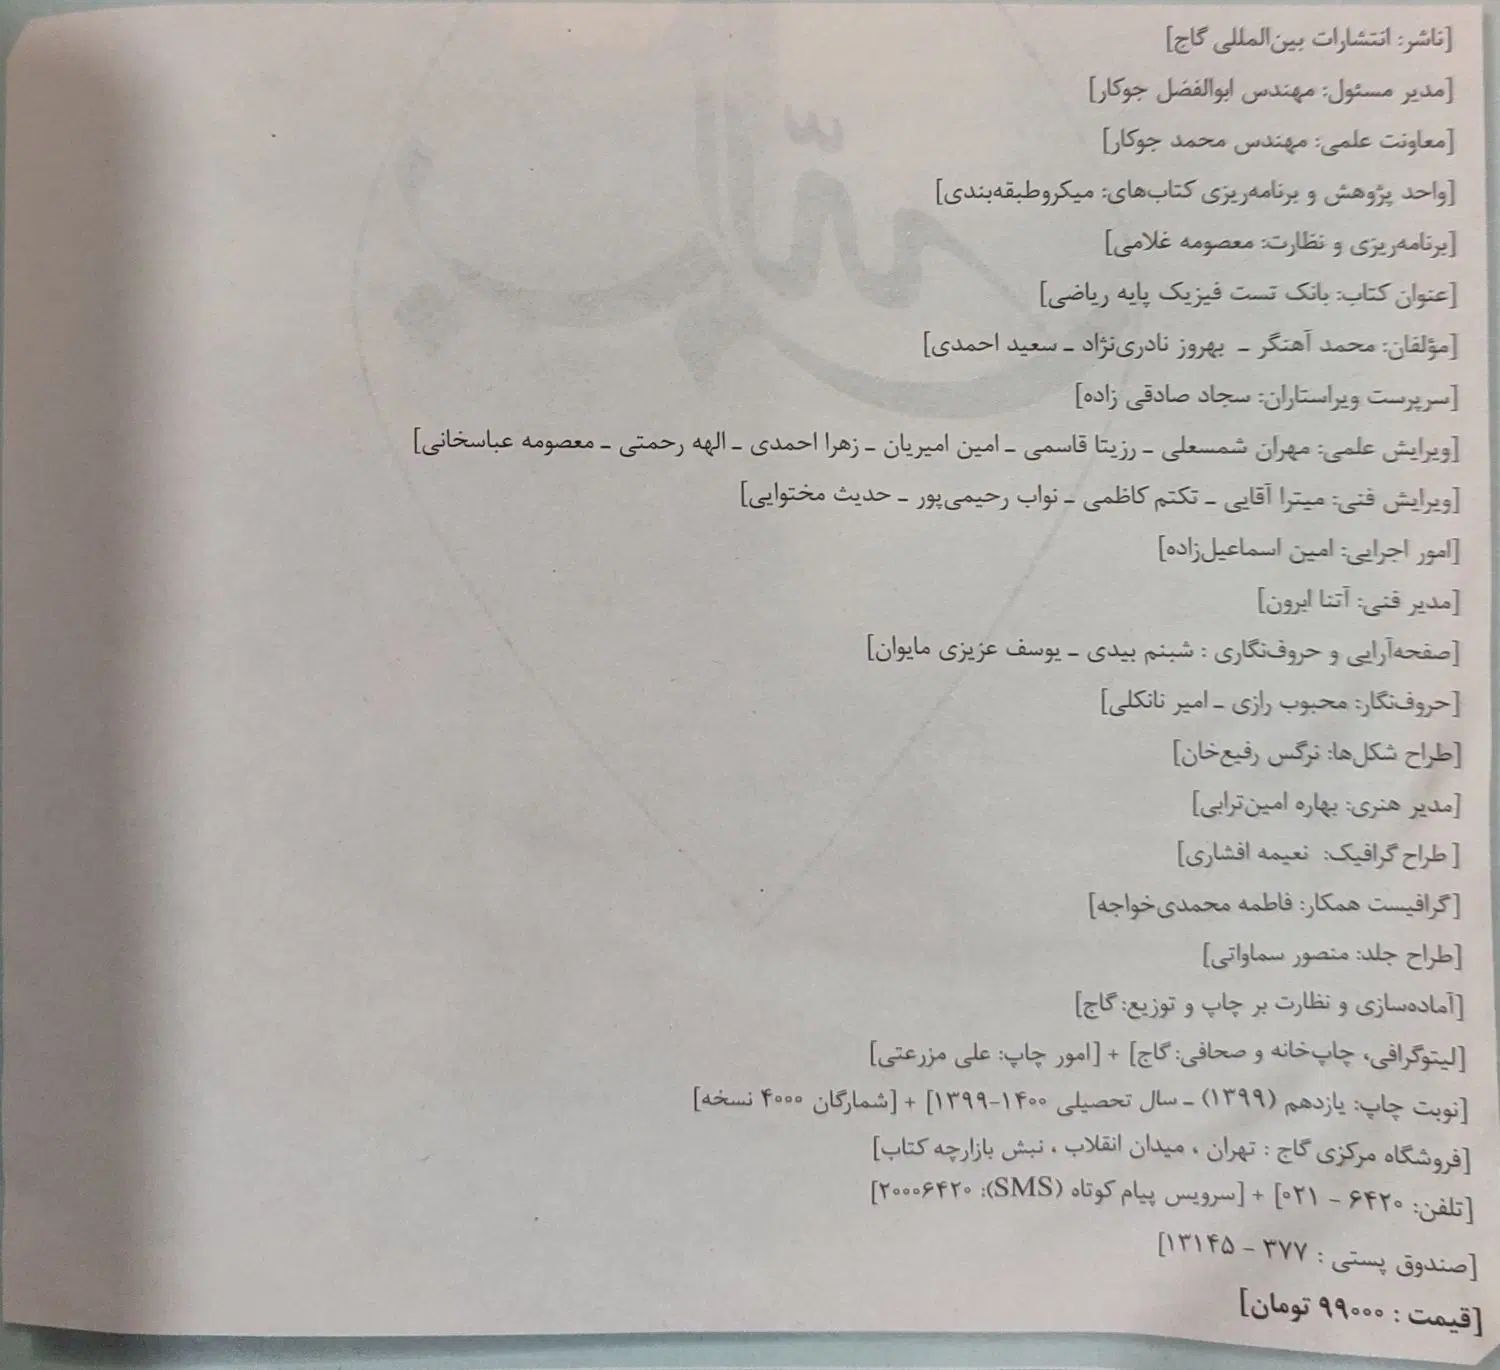 [ناشر: انتشارات بین‌المللی گاج]
[مدیر مسئول: مهندس ابوالفضل جوکار]
[معاونت علمی: مهندس محمد جوکار]
[واحد پژوهش و برنامه‌ریزی کتاب‌های: میکروطبقه‌بندی]
[برنامه‌ریزی و نظارت: معصومه غلامی]
[عنوان کتاب: بانک تست فیزیک پایه ریاضی]
[مؤلفان: محمد آهنگر ـ بهروز نادری‌نژاد ـ سعید احمدی]
[سرپرست ویراستاران: سجاد صادقی زاده]
[ویرایش علمی: مهران شمسعلی ـ رزیتا قاسمی ـ امین امیریان ـ زهرا احمدی ـ الهه رحمتی ـ معصومه عباسخانی]
[ویرایش فنی: میترا آقایی ـ تکتم کاظمی ـ نواب رحیمی‌پور ـ حدیث مختوایی]
[امور اجرایی: امین اسماعیل‌زاده]
[مدیر فنی: آتنا ایرون]
[صفحه‌آرایی و حروف‌نگاری : شبنم بیدی ـ یوسف عزیزی مایوان]
[حروف‌نگار: محبوب رازی ـ امیر نانکلی]
[طراح شکل‌ها: نرگس رفیع‌خان]
[مدیر هنری: بهاره امین‌ترابی]
[طراح گرافیک: نعیمه افشاری]
[گرافیست همکار: فاطمه محمدی‌خواجه]
[طراح جلد: منصور سماواتی]
[آماده‌سازی و نظارت بر چاپ و توزیع: گاج]
[لیتوگرافی، چاپ‌خانه و صحافی: گاج] + [امور چاپ: علی مزرعتی]
[نوبت چاپ: یازدهم (۱۳۹۹) ـ سال تحصیلی ۱۴۰۰-۱۳۹۹] + [شمارگان ۴۰۰۰ نسخه]
[فروشگاه مرکزی گاج : تهران ، میدان انقلاب ، نبش بازارچه کتاب]
[تلفن: ۶۴۲۰ - ۰۲۱] + [سرویس پیام کوتاه (SMS): ۲۰۰۰۶۴۲۰]
[صندوق پستی : ۳۷۷ - ۱۳۱۴۵]
[قیمت : ۹۹۰۰۰ تومان]